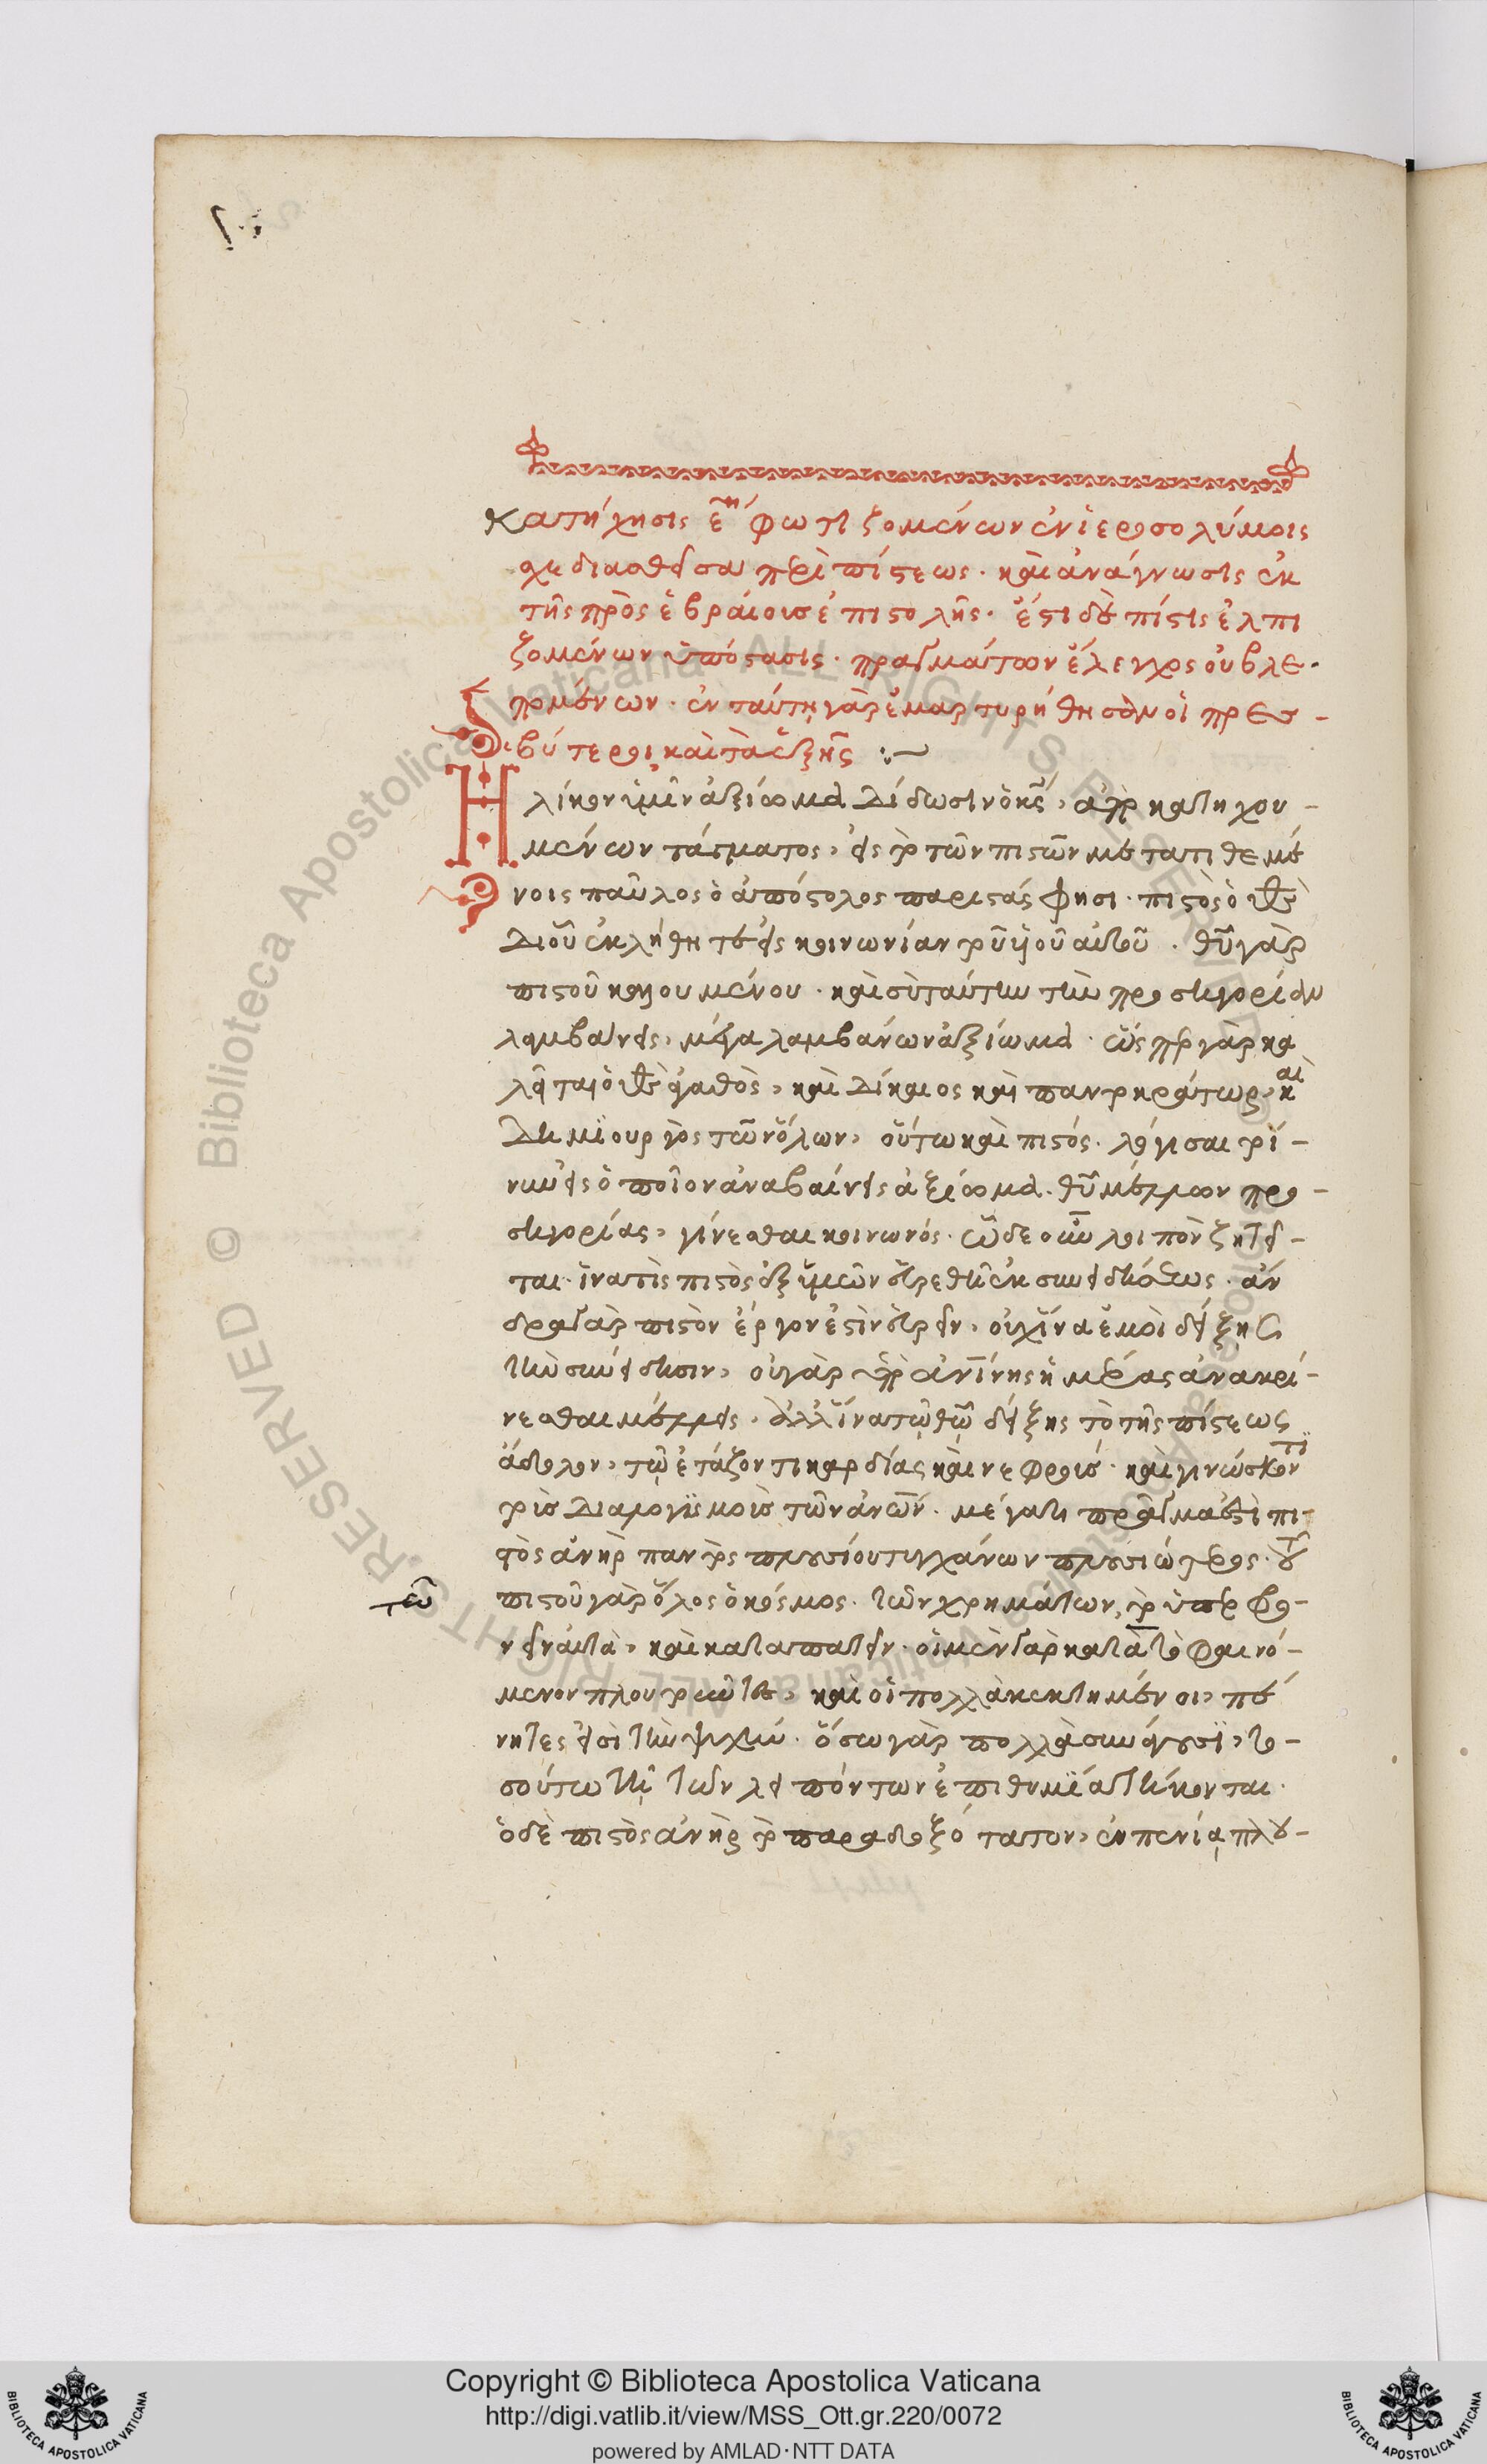 κατήχησις ε̅ η φωτιζομένων ἐν ἱεροσολύμοις
σχεδιασθεῖσα περὶ πίστεως· καὶ ἀνάγνωσις ἐκ
τῆς πρὸς ἑβραίους ἐπιστολῆς· ἔστι δὲ πίστις ἐλπι
ζομένων ὑπόστασις· πραγμάτων ἔλεγχος οὐ βλε-
πομένων· ἐν ταύτῃ γὰρ ἐμαρτυρήθησαν οἱ πρεσ-
βύτεροι, καὶ τὰ ἑξῆς :~
Ἡλίκον ὑμῖν ἀξίωμα δίδωσιν ὁ κ̅ς, ἀπὸ κατηχου-
μένων τάγματος, εἰς τὸ τῶν πιστῶν μετατιθεμέ
νοις παῦλος ὁ ἀπόστολος παριστάς φησι· πιστὸς ὁ θ̅ς
δι οὗ ἐκλήθητε εἰς κοινωνίαν τοῦ υἱοῦ αὐτοῦ· θ̅υ γὰρ
πιστοῦ καλουμένου· καὶ σὺ ταύτην τὴν προσηγορίαν
λαμβάνεις, μέγα λαμβάνων ἀξίωμα· ὥσπερ γὰρ κα
λεῖται ὁ θ̅ς ἀγαθὸς, καὶ δίκαιος καὶ παντοκράτωρ, καὶ
δημιουργὸς τῶν ὅλων, οὕτω καὶ πιστός· λόγισαι τοί-
νυν εἰς ὁποῖον ἀναβαίνεις ἀξίωμα· θ̅υ μέλλων προ-
σηγορίας, γίνεσθαι κοινωνός· ὧδε οὖν λοιπὸν ζητεῖ-
ται· ἵνα τὶς πιστὸς ἐξ ὑμῶν εὑρεθῇ ἐκ συνειδήσεως· ἄν
δρα γὰρ πιστὸν ἔργον ἐστὶν εὑρεῖν, οὐχ ἵνα ἐμοὶ δείξῃς
τὴν συνείδησιν, οὐ γὰρ ὑπὸ ἀν̅ίνης ἡμέρας ἀνακρί-
νεσθαι μέλλεις, ἀλλ ἵνα τῷ θ̅ῷ δείξης τὸ τῆς πίστεως
ἄδολον, τῷ ἐτάζοντι καρδίας καὶ νεφρούς· καὶ γινώσκοντι
τοὺς διαλογισμοὺς τῶν ἀν̅ῶν· μέγα τι πρᾶγμα ἐστὶ πι-
στὸς ἀνὴρ παντὸς πλουσίου τυγχάνων πλουσιώτερος· τοῦ
πιστοῦ γὰρ ὅλος ὁ κόσμος τῶν χρημάτων, τὸ ὑπερφρο-
τῶ
νεῖν αὐτὰ, καὶ καταπατεῖν· οἱ μὲν γὰρ κατὰ τὸ φαινό-
μενον πλουτοῦντες, καὶ οἱ πολλὰ κεκτημένοι, πέ
νητες εἰσὶ τὴν ψυχήν· ὅσω γὰρ πολλὰ συνάγουσι, το-
σούτω τῇ τῶν λειπόντων ἐπιθυμίᾳ τήκονται·
ὁ δὲ πιστὸς ἀνὴρ τὸ παραδοξότατον, ἐν πενίᾳ πλου-
Copyright © Biblioteca Apostolica Vaticana
http://digi.vatlib.it/view/MSS_Ott.gr.220/0072
powered by AMLAD·NTT DATA